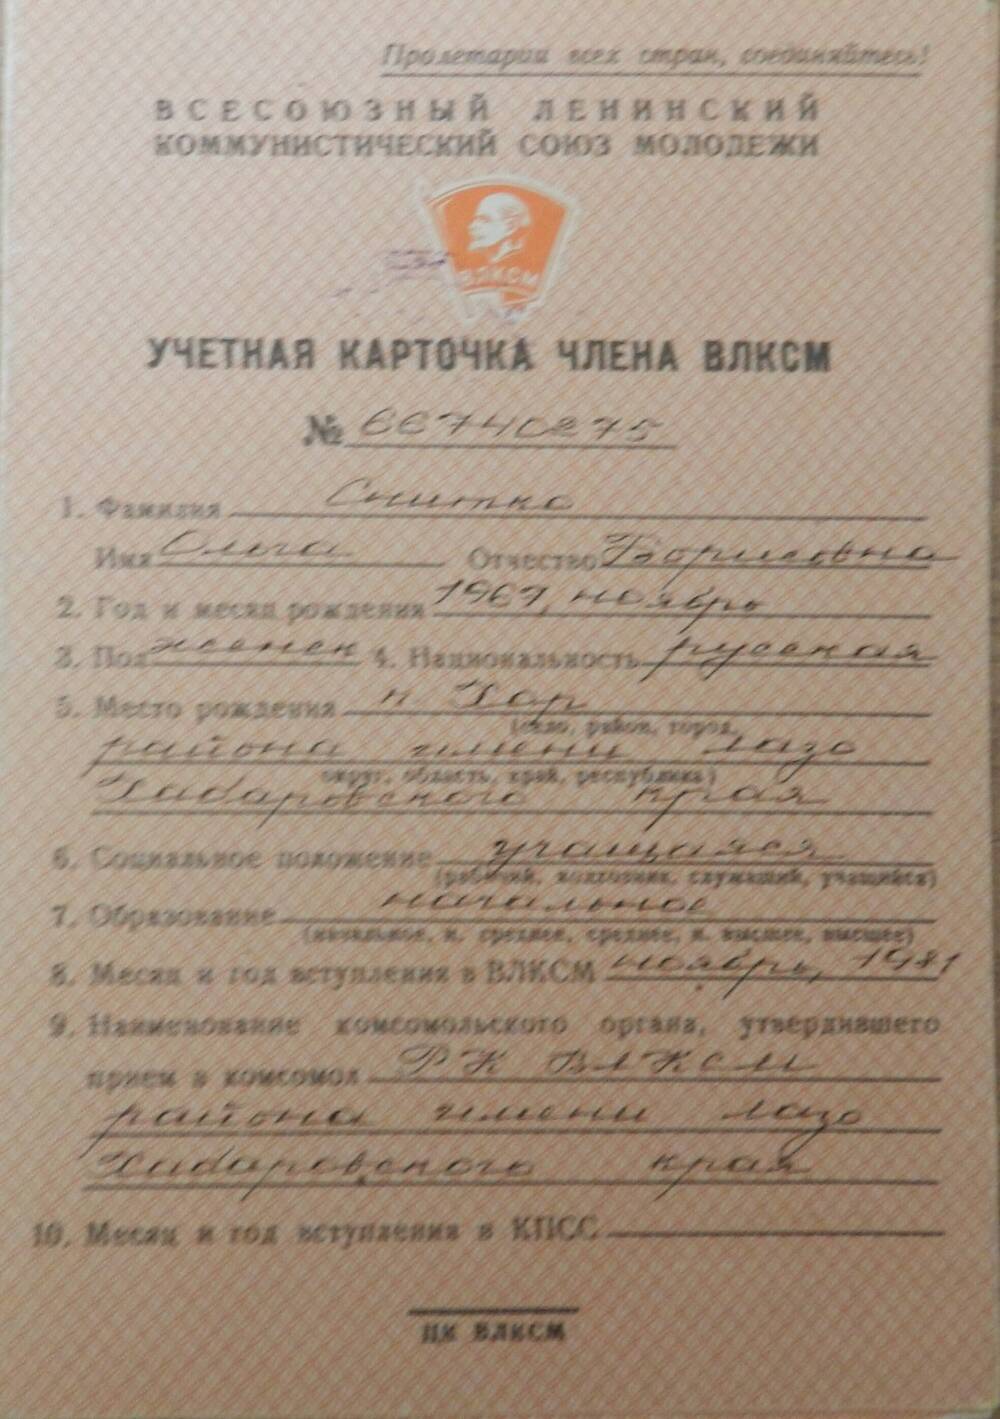 Пролетарии всех стран, соединяйтесь!
ВСЕСОЮЗНЫЙ ЛЕНИНСКИЙ
КОММУНИСТИЧЕСКИЙ СОЮЗ МОЛОДЕЖИ
ВЛКСМ
УЧЕТНАЯ КАРТОЧКА ЧЛЕНА ВЛКСМ
№ 66740275
1. Фамилия Снитко
Имя Ольга Отчество Борисовна
2. Год и месяц рождения 1967, ноябрь
3. Пол женск 4. Национальность русская
5. Место рождения п. Хор
(село, район, город,
района имени Лазо
округ, область, край, республика)
Хабаровского края
6. Социальное положение учащаяся
(рабочий, колхозник, служащий, учащийся)
7. Образование начальное
(начальное, н. среднее, среднее, н. высшее, высшее)
8. Месяц и год вступления в ВЛКСМ ноябрь, 1981
9. Наименование комсомольского органа, утвердившего
прием в комсомол РК ВЛКСМ
района имени Лазо
Хабаровского края
10. Месяц и год вступления в КПСС
ЦК ВЛКСМ